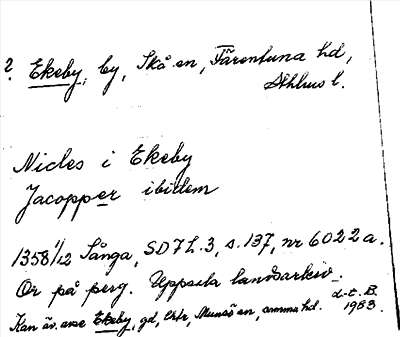 ? Ekeby, by, Skå sn, Färentuna hd,
Sthlms l.
Nicles i Ekeby
Jacopper ibidem
1358 1/12 Sånga, SD 7 h. 3, s. 137, nr 6022 a.
Or på perg. Uppsala landsarkiv.
L-t. B.
Kan äv. avse Ekeby, gd, Munsö sn, samma hd. 1983.